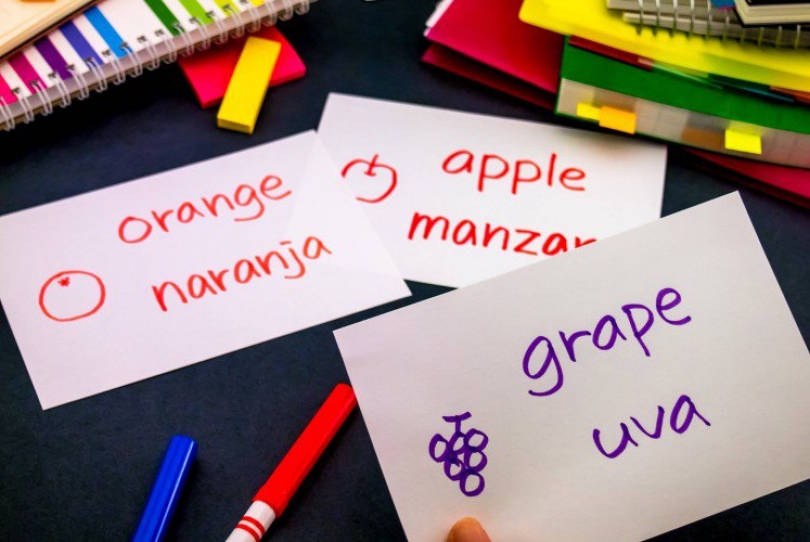 orange
naranja
apple
grape
uva